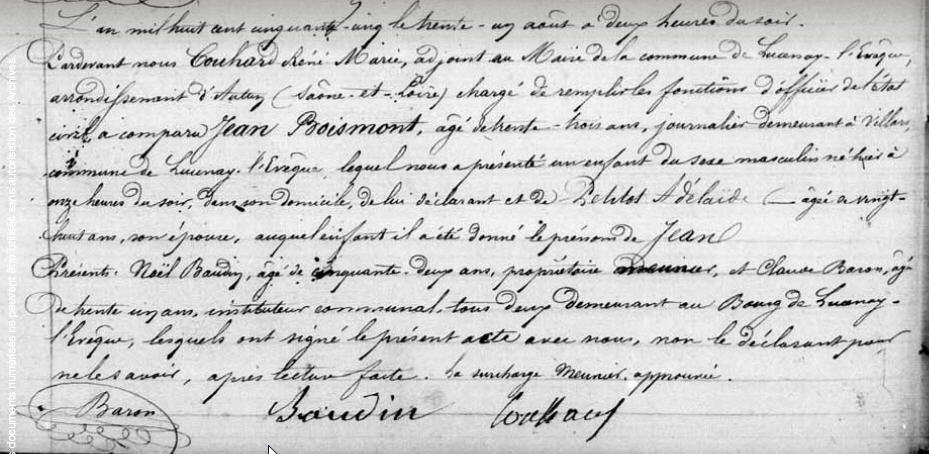 L'an mil huit cent cinquante-cinq le trente-un août à deux heures du soir.
Pardevant nous Couhard Réné Marie, adjoint au Maire de la commune de Lucenay-l'Evêque,
arrondissement d'Autun (Saône-et-Loire) chargé de remplir les fonctions d'officier de l'Etat
civil a comparu Jean Boismont, âgé de trente-trois ans, journalier demeurant à Villars,
commune de Lucenay-l'Evêque, lequel nous a présenté un enfant du sexe masculin né hier à
onze heures du soir, dans son domicile, de lui déclarant et de Petitot Adélaïde âgée de vingt-
huit ans, son épouse, auquel enfant il a été donné le prénom de Jean
Présents: Noël Baudin, âgé de cinquante-deux ans, propriétaire meunier, et Claude Baron, âgé
de trente un ans, instituteur communal, tous deux demeurant au Bourg de Lucenay-
l'Evêque, lesquels ont signé le présent acte avec nous, non le déclarant pour
ne le savoir, après lecture faite. la surcharge Meunier approuvée.
Baron Baudin Couhard
documents numérisés ne peuvent être utilisés sans autorisation des Archives